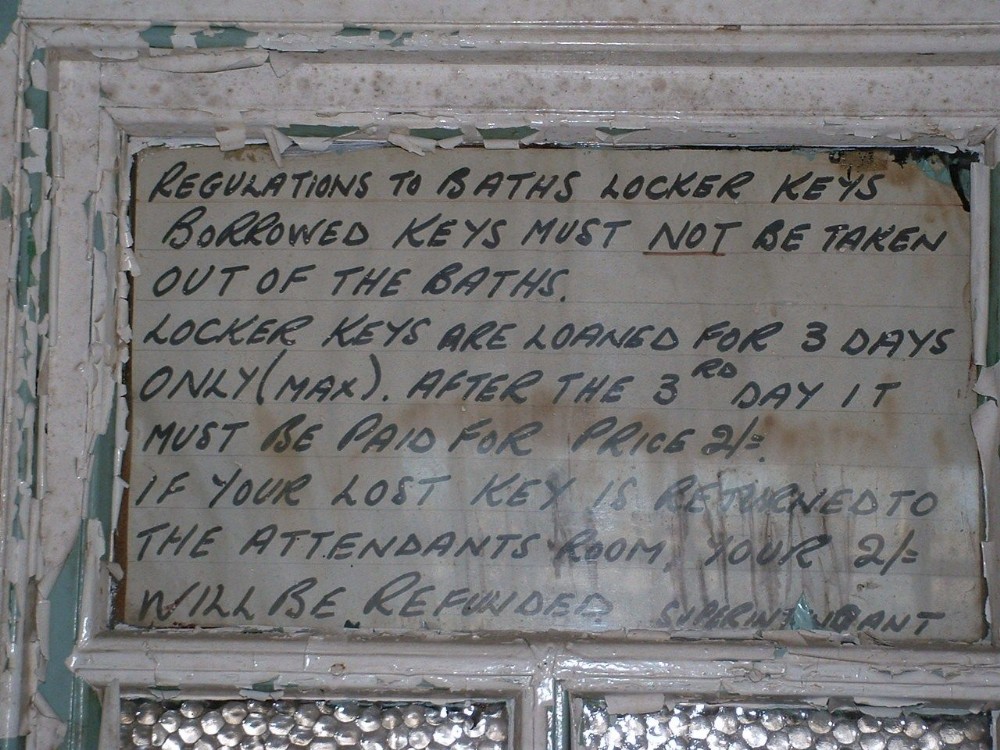 REGULATIONS TO BATHS LOCKER KEYS
BORROWED KEYS MUST NOT BE TAKEN
OUT OF THE BATHS.
LOCKER KEYS ARE LOANED FOR 3 DAYS
ONLY (MAX). AFTER THE 3RD DAY IT
MUST BE PAID FOR PRICE 2/=.
IF YOUR LOST KEY IS RETURNED TO
THE ATTENDANTS ROOM, YOUR 2/=
WILL BE REFUNDED